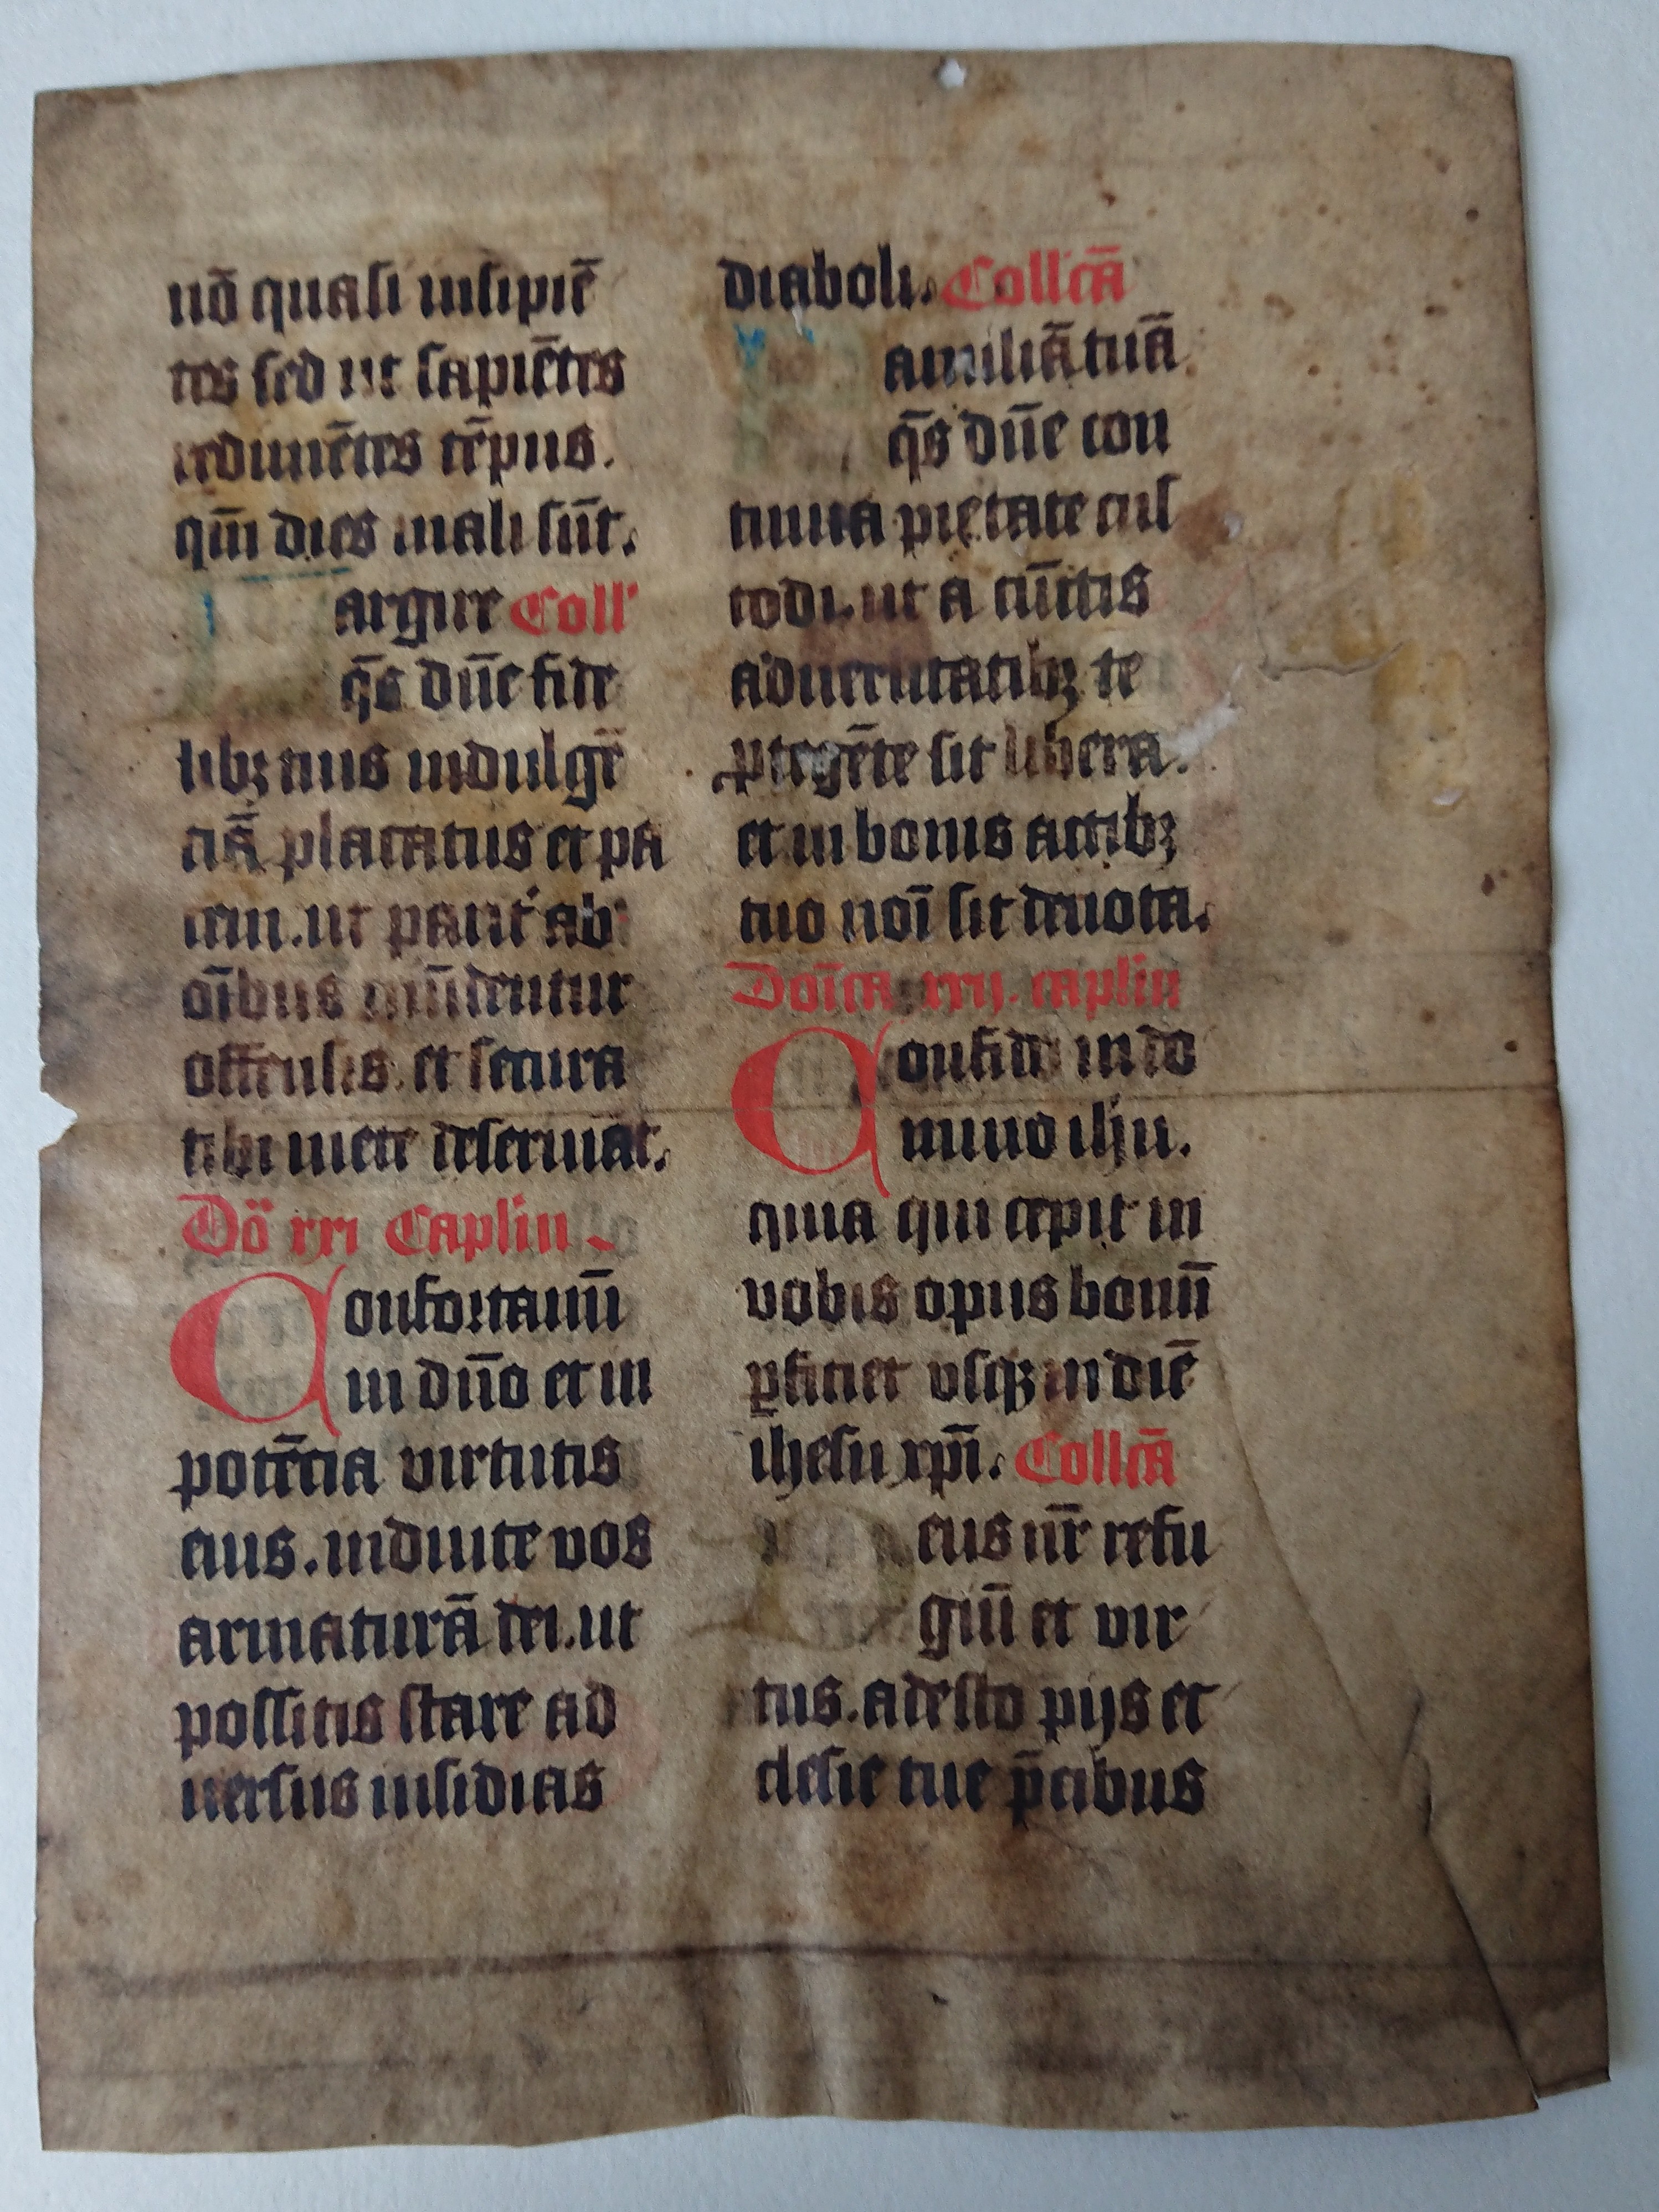 nō quasi insipiē
tes sed ut sapiētes
redimētes tēpus.
qm̄ dies mali sūt.
Largire Coll'
q̄s dn̄e fide
libꝫ tuis indulgē
ciā placatus et pa
cem. ut parit' ab
oībus mūdentur
offensis. et secura
tibi mēte deseruiāt.
Dō xxi Caplm
Confortamī
in dn̄o et in
potēcia virtutis
eius. induite vos
armaturā dei. ut
possitis stare ad
uersus insidias
diaboli. Collcā
Familiā tuā
q̄s dn̄e con
tinua pietate cus
todi. ut a cūctis
aduersitatibꝫ te
ꝓtegēte sit libera.
et in bonis actibꝫ
tuo noī sit deuota.
Doīca xxij. caplm
Confido in do
mino ihū.
quia qui cepit in
vobis opus bonū
ꝑficiet vsqꝫ in diē
ihesu xpī. Collcā
Deus nr̄ refu
giū et vir
tus. adesto pijs ec
clesie tue p̄cibus